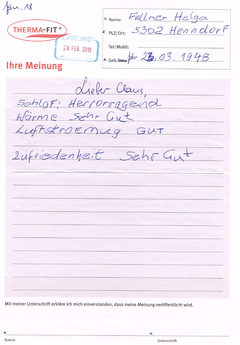 Jan. 18
THERMA-FIT®
28. FEB. 2018
Name: Füllner Helga
PLZ/Ort: 5302 Henndorf
Tel/Mobil:
Geb. 23.03.1948
Ihre Meinung
Lieber Claus,
Schlaf: Herrorragend
Wärme Sehr Gut
Luftstroemug GUT
Zufriedenheit Sehr Gut
Mit meiner Unterschrift erkläre ich mich einverstanden, dass meine Meinung veröffentlicht wird.
Datum
Unterschrift